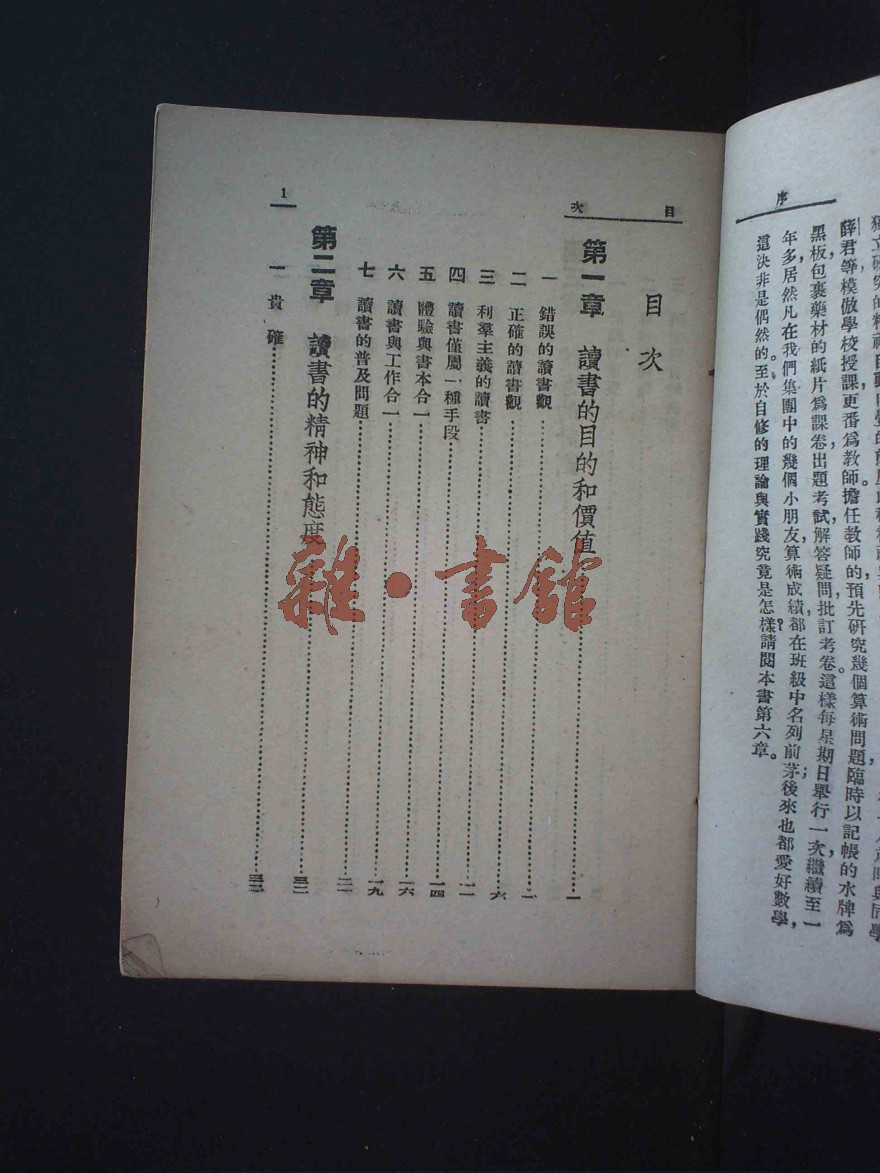 序
薛君等模倣學校授課,更番爲教師。擔任教師的預先研究。幾個算術問題,臨時以記帳的水牌爲
黑板包裹藥材的紙片爲課卷出題考試,解答疑問,批訂考卷這樣每星期日舉行一次,繼續至一
年多,居然凡在我們集團中的幾個小朋友,算術成績,都在班級中名列前茅;後來也都愛好數學,
這決非是偶然的。至於自修的理論與實踐究竟是怎樣?請閱本書第六章。
目次
目次
第一章 讀書的目的和價值……一
一 錯誤的讀書觀……一
二 正確的讀書觀……六
三 利羣主義的讀書……一一
四 讀書僅屬一種手段……一四
五 體驗與書本合一……一六
六 讀書與工作合一……一九
七 讀書的普及問題……二一
第二章 讀書的精神和態度……三二
一 貴確……三二
1
雜·書館